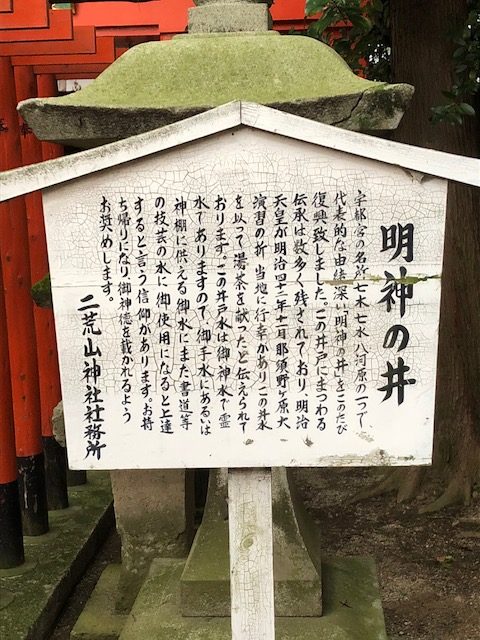 明神の井
宇都宮の名所七木七水八河原の一つで、
代表的な由緒深い「明神の井」をこのたび
復興致しました。この井戸にまつわる
伝承は数多く残されており、明治
天皇が明治四十二年十一月那須野ヶ原大
演習の折、当地に行幸がありこの井水
を以って湯茶を献ったと伝えられて
おります。この井戸水は御神水で霊
水でありますので、御手水にあるいは
神棚に供える御水にまた書道等
の技芸の水に御使用になると上達
すると言う信仰があります。お持
ち帰りになり御神徳を戴かれるよう
お奨めします。
二荒山神社社務所